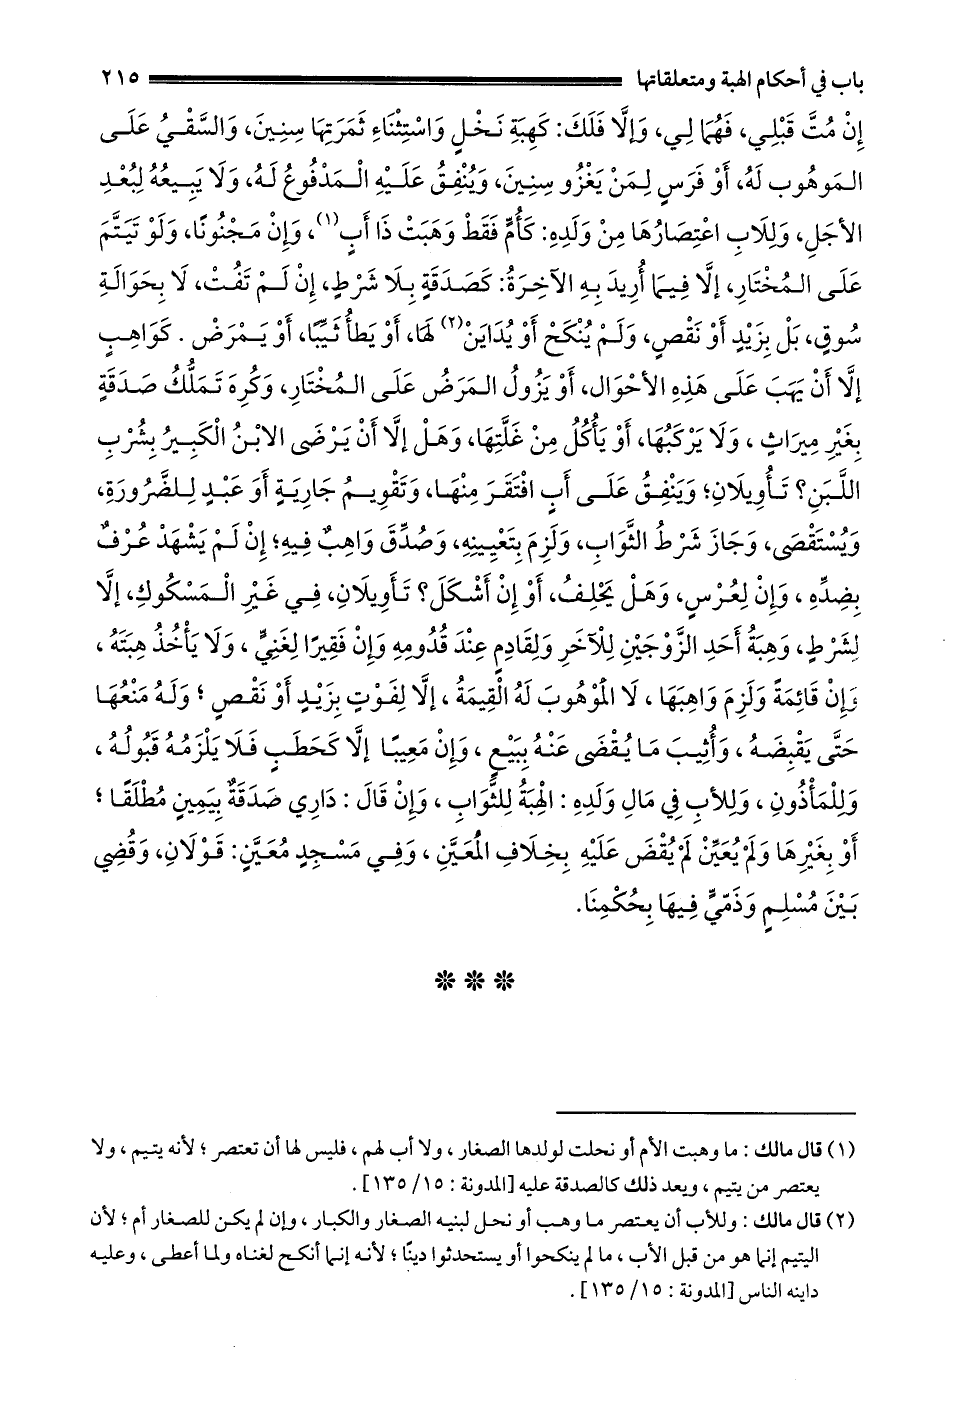 باب في أحكام الهبة ومتعلقاتها ٢١٥
إِنْ مُتَّ قَبْلِي، فَهُمَا لِي، وَإِلَّا فَلَكَ: كَهِبَةِ نَخْلٍ وَاسْتِثْنَاءِ ثَمَرَتِهَا سِنِينَ، وَالسَّقْيُ عَلَى
الـمَوهُوبِ لَهُ، أَوْ فَرَسٍ لِمَنْ يَغْزُو سِنِينَ، وَيُنْفِقُ عَلَيْهِ الْـمَدْفُوعُ لَهُ، وَلَا يَبِيعُهُ لِبُعْدِ
الأَجَلِ، وَلِلَابِ اعْتِصَارُهَا مِنْ وَلَدِهِ: كَأُمٍّ فَقَطْ وَهَبَتْ ذَا أَبٍ(١)، وَإِنْ مَجْنُونًا، وَلَوْ تَيَتَّمَ
عَلَى الـمُخْتَارِ، إِلَّا فِيمَا أُرِيدَ بِهِ الآخِرَةُ: كَصَدَقَةٍ بِلَا شَرْطٍ، إِنْ لَـمْ تَفُتْ، لَا بِحَوَالَةِ
سُوقٍ، بَلْ بِزَيْدٍ أَوْ نَقْصٍ، وَلَـمْ يُنْكَحْ أَوْ يُدَايَنْ(٢) لَهَا، أَوْ يَطَأْ ثَيِّبًا، أَوْ يَـمْرَضْ. كَوَاهِبٍ
إِلَّا أَنْ يَهَبَ عَلَى هَذِهِ الأَحْوَالِ، أَوْ يَزُولُ الـمَرَضُ عَلَى الـمُخْتَارِ، وَكُرِهَ تَـمَلُّكُ صَدَقَةٍ
بِغَيْرِ مِيرَاثٍ، وَلَا يَرْكَبُهَا، أَوْ يَأْكُلُ مِنْ غَلَّتِهَا، وَهَلْ إِلَّا أَنْ يَرْضَى الابْنُ الْكَبِيرُ بِشُرْبِ
اللَّبَنِ؟ تَأْوِيلَانِ؛ وَيَنْفِقُ عَلَى أَبٍ افْتَقَرَ مِنْهَا، وَتَقْوِيـمُ جَارِيَةٍ أَوْ عَبْدٍ لِلضَّرُورَةِ،
وَيُسْتَقْصَى، وَجَازَ شَرْطُ الثَّوَابِ، وَلَزِمَ بِتَعْيِينِهِ، وَصُدِّقَ وَاهِبٌ فِيهِ؛ إِنْ لَـمْ يَشْهَدْ عُرْفٌ
بِضِدِّهِ، وَإِنْ لِعُرْسٍ، وَهَلْ يَحْلِفُ، أَوْ إِنْ أَشْكَلَ؟ تَأْوِيلَانِ، فِي غَيْرِ الْـمَسْكُوكِ، إِلَّا
لِشَرْطٍ، وَهِبَةُ أَحَدِ الزَّوْجَيْنِ لِلْآخَرِ وَلِقَادِمٍ عِنْدَ قُدُومِهِ وَإِنْ فَقِيرًا لِغَنِيٍّ، وَلَا يَأْخُذُ هِبَتَهُ،
وَإِنْ قَائِمَةً وَلَزِمَ وَاهِبَهَا، لَا الْمَوْهُوبَ لَهُ الْقِيمَةُ، إِلَّا لِفَوْتٍ بِزَيْدٍ أَوْ نَقْصٍ؛ وَلَهُ مَنْعُهَا
حَتَّى يَقْبِضَهُ، وَأُثِيبَ مَا يُقْضَى عَنْهُ بِبَيْعٍ، وَإِنْ مَعِيبًا إِلَّا كَحَطَبٍ فَلَا يَلْزَمُهُ قَبُولُهُ،
وَلِلْمَأْذُونِ، وَلِلأَبِ فِي مَالِ وَلَدِهِ: الْهِبَةُ لِلثَّوَابِ، وَإِنْ قَالَ: دَارِي صَدَقَةٌ بِيَمِينٍ مُطْلَقًا؛
أَوْ بِغَيْرِهَا وَلَمْ يُعَيِّنْ لَمْ يُقْضَ عَلَيْهِ بِخِلَافِ الْمُعَيَّنِ، وَفِي مَسْجِدٍ مُعَيَّنٍ: قَوْلَانِ، وَقُضِي
بَيْنَ مُسْلِمٍ وَذِمِّيٍّ فِيهَا بِحُكْمِنَا.
❊ ❊ ❊
(١) قال مالك: ما وهبت الأم أو نحلت لولدها الصغار، ولا أب لهم، فليس لها أن تعتصر؛ لأنه يتيم، ولا
يعتصر من يتيم، ويعد ذلك كالصدقة عليه [المدونة: ١٣٥/١٥].
(٢) قال مالك: وللأب أن يعتصر ما وهب أو نحل لبنيه الصغار والكبار، وإن لم يكن للصغار أم؛ لأن
اليتيم إنما هو من قبل الأب، ما لم ينكحوا أو يستحدثوا دينًا؛ لأنه إنما أنكح لغناه ولما أعطى، وعليه
داينه الناس [المدونة: ١٣٥/١٥].